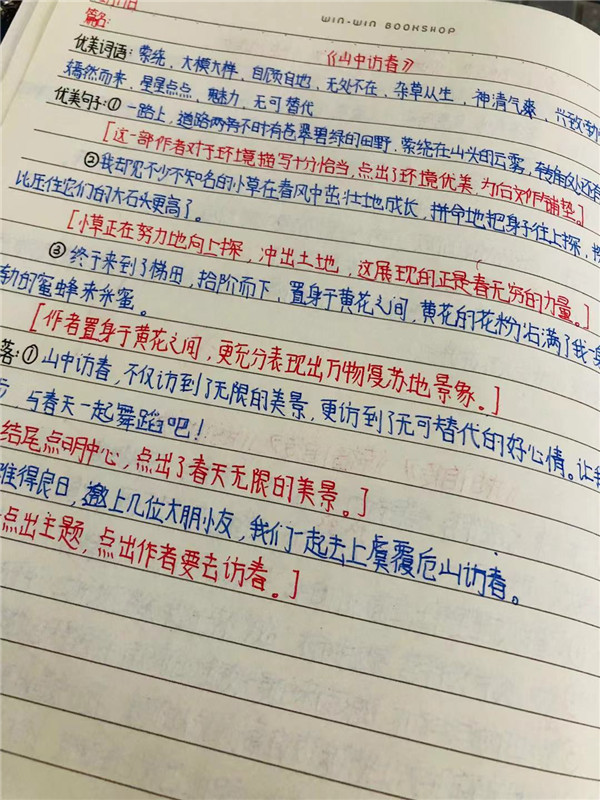 WIN-WIN BOOKSHOP
篇名: 《山中访春》
优美词语: 萦绕, 大模大样, 自顾自地, 无处不在, 杂草从生, 神清气爽, 兴致勃
嫣然而来, 星星点点, 魅力, 无可替代
优美句子: ① 一路上, 道路两旁不时有苍翠碧绿的田野, 萦绕在山头的云雾, 转角处还有
[这一部作者对于环境描写十分恰当, 点出了环境优美, 为后文作铺垫。]
②我却见不少不知名的小草在春风中茁壮地成长, 拼命地把身子往上探,
比压住它们的大石头更高了。
[小草正在努力地向上探, 冲出土地, 这展现的正是春无穷的力量。]
③ 终于来到了梯田, 拾阶而下, 置身于黄花之间, 黄花的花粉沾满了我
勤的蜜蜂来采蜜。
[作者置身于黄花之间, 更充分表现出万物复苏地景象。]
落: ① 山中访春, 不仅访到了无限的美景, 更访到了无可替代的好心情。让我
与春天一起舞蹈吧!
结尾点明中心, 点出了春天无限的美景。]
难得良日, 邀上几位大朋小友, 我们一起去上虞覆卮山访春。
点出主题, 点出作者要去访春。]